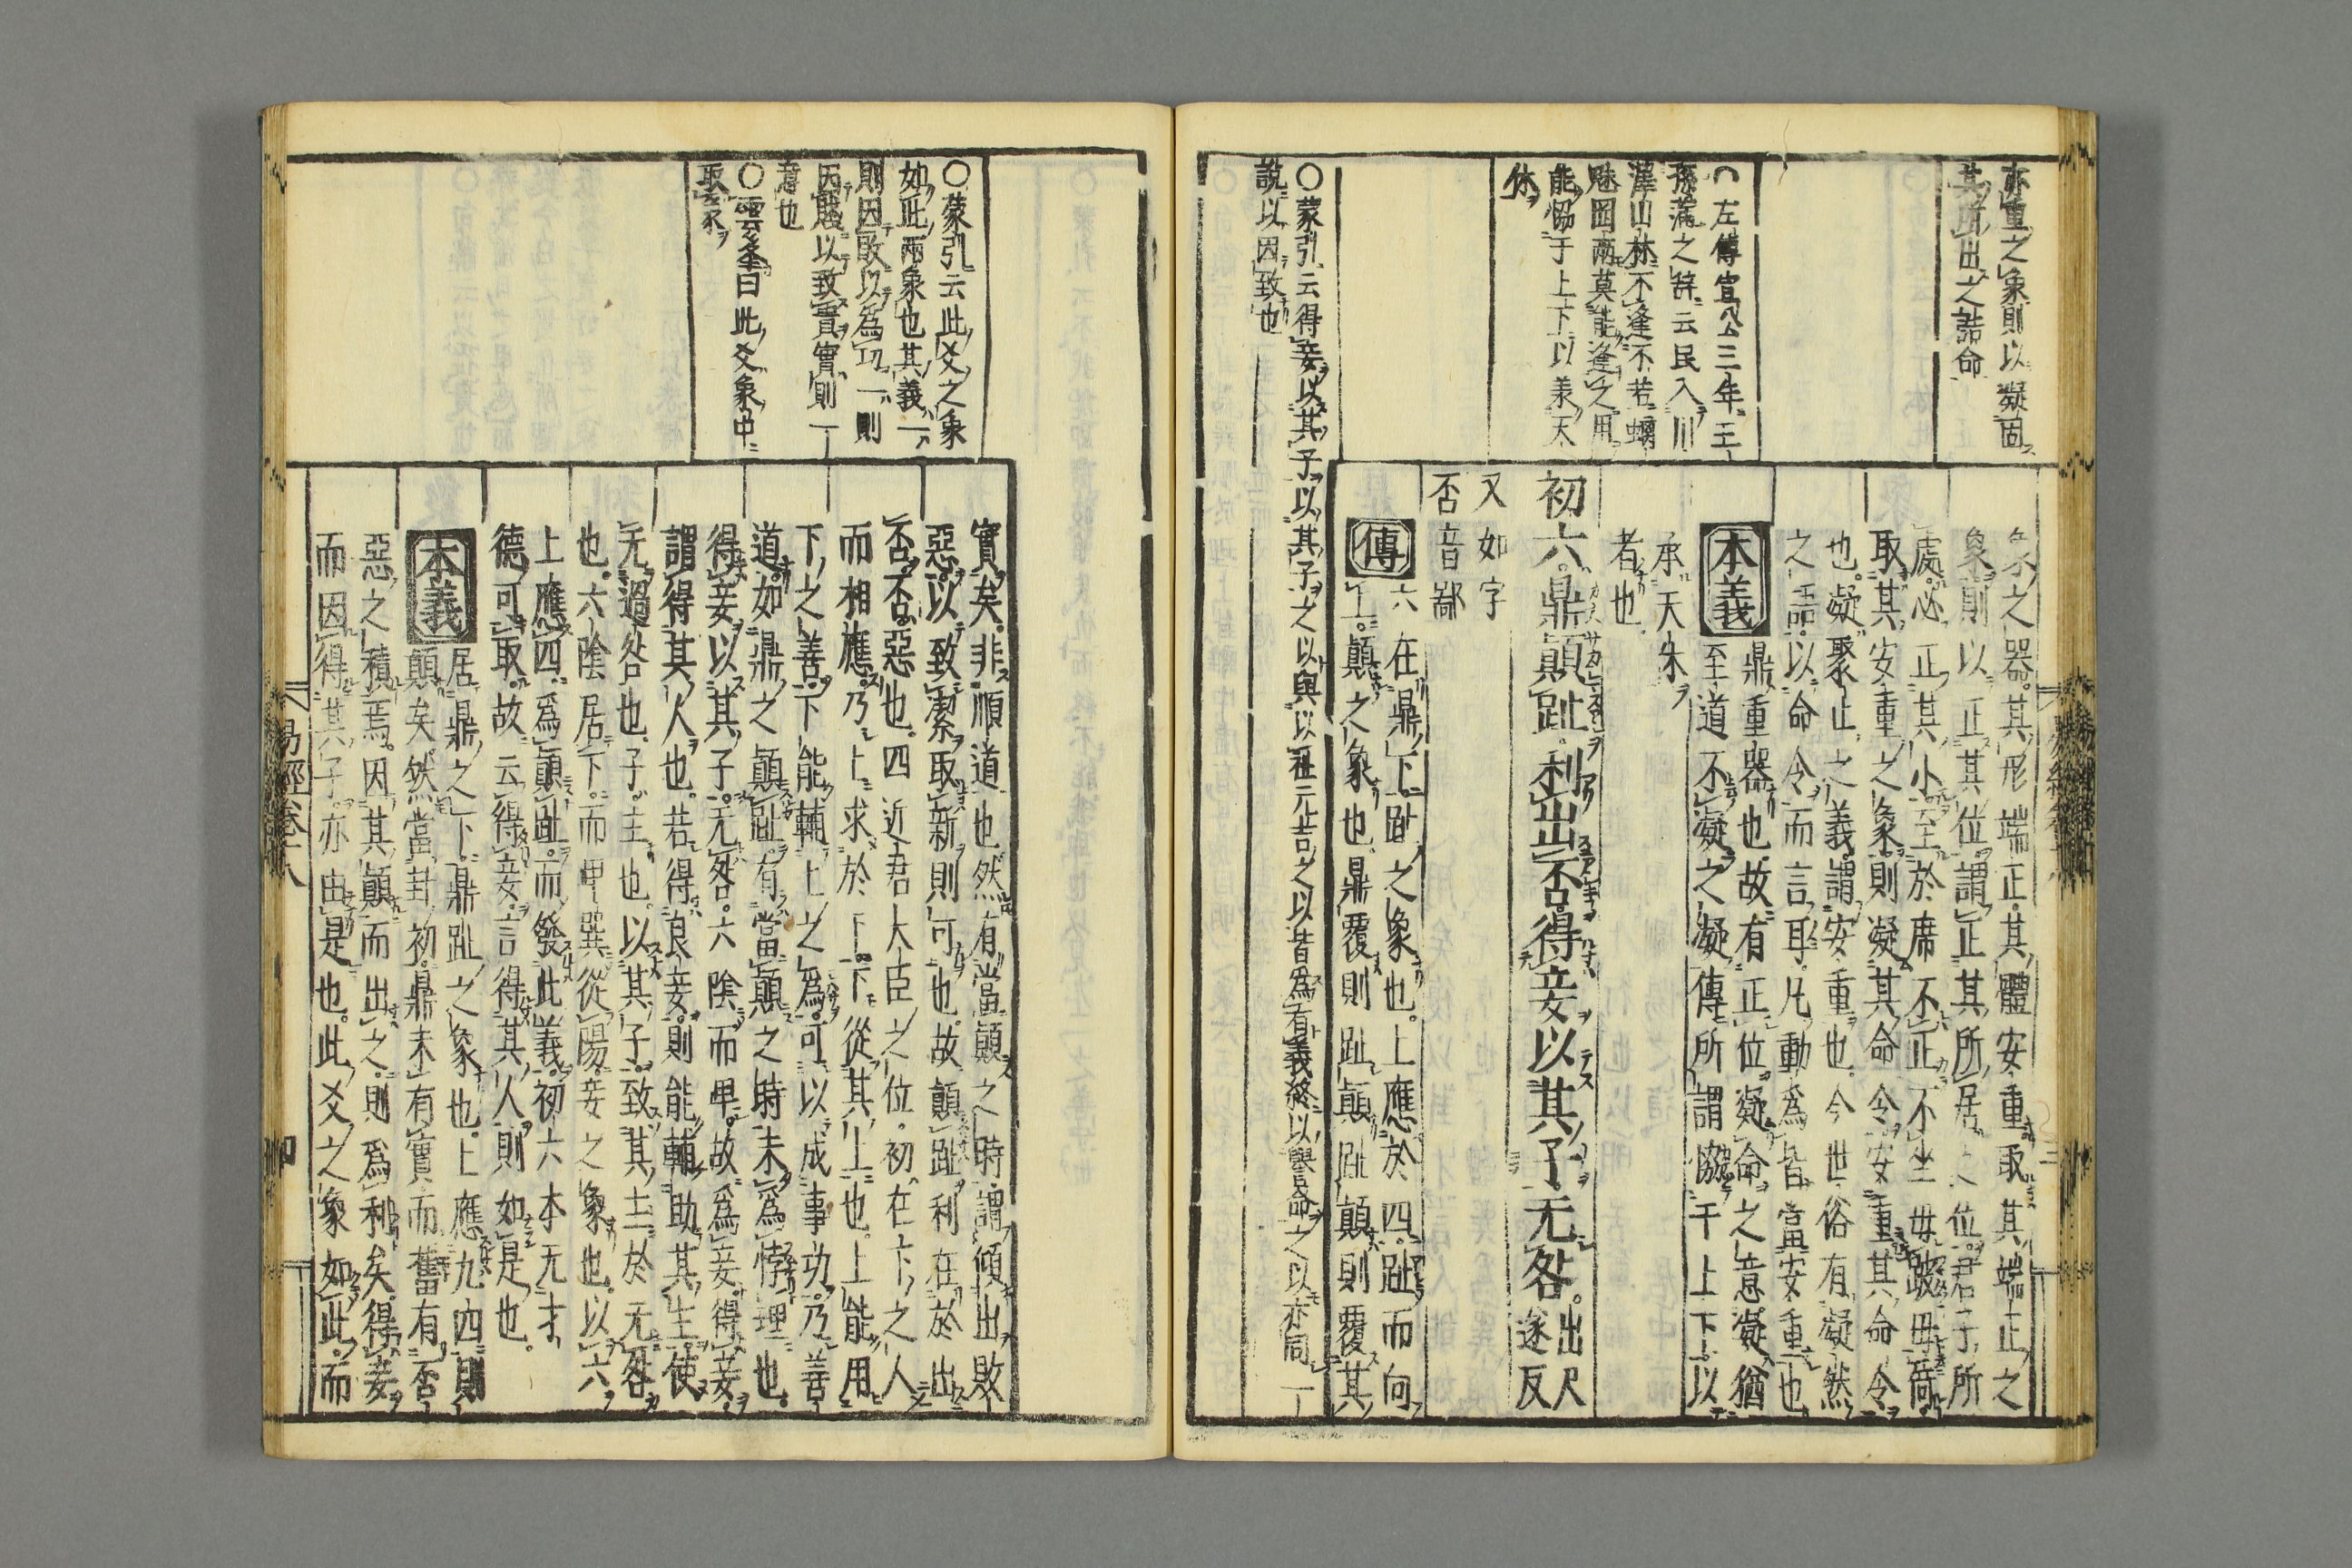 亦重之象則以凝固
其所出之誥命
左傳宣公三年王
孫滿之辭云民入川
澤山林不逢不若螭
魅罔兩莫能逢之用
能協于上下以承天
休
〇蒙引云得妾以其子以其子之以與以祉元吉之以昔為有義終以譽命之以亦同一
說以因致也
象之器其形端正其體安重取其端正之
象則以正其位謂正其所居之位君子所
處必正其小至於席不正不坐毋跛毋倚
取其安重之象則凝其命令安重其命令
也凝聚止之義謂安重也今世俗有凝然
之語以命令而言耳凡動為皆當安重也
本義
鼎重器也故有正位凝命之意凝猶
至道不凝之凝傳所謂協于上下以
承天休
者也
初六鼎顛趾利出否得妾以其子无咎
出尺
遂反
又如字
否音鄙
傳
六在鼎下趾之象也上應於四趾而向
上顛之象也鼎覆則趾顛趾顛則覆其
〇蒙引云此爻之象
如此兩象也其義一
則因敗以為功一則
因賤以致貴實則一
意也
〇雲峯曰此爻象中
取象
實矣非順道也然有當顛之時謂傾出敗
惡以致潔取新則可也故顛趾利在於出
否否惡也四近君大臣之位初在下之人
而相應乃上求於下下從其上也上能用
下之善下能輔上之為可以成事功乃善
道如鼎之顛趾有當顛之時未為悖理也
得妾以其子无咎六陰而卑故為妾得妾
謂得其人也若得良妾則能輔助其主使
无過咎也子主也以其子致其主於无咎
也六陰居下而卑巽從陽妾之象也以六
上應四為顛趾而發此義初六本无才
德可取故云得妾言得其人則如是也
本義
居鼎之下鼎趾之象也上應九四則
顛矣然當卦初鼎未有實而舊有否
惡之積焉因其顛而出之則為利矣得妾
而因得其子亦由是也此爻之象如此而
易經卷之八